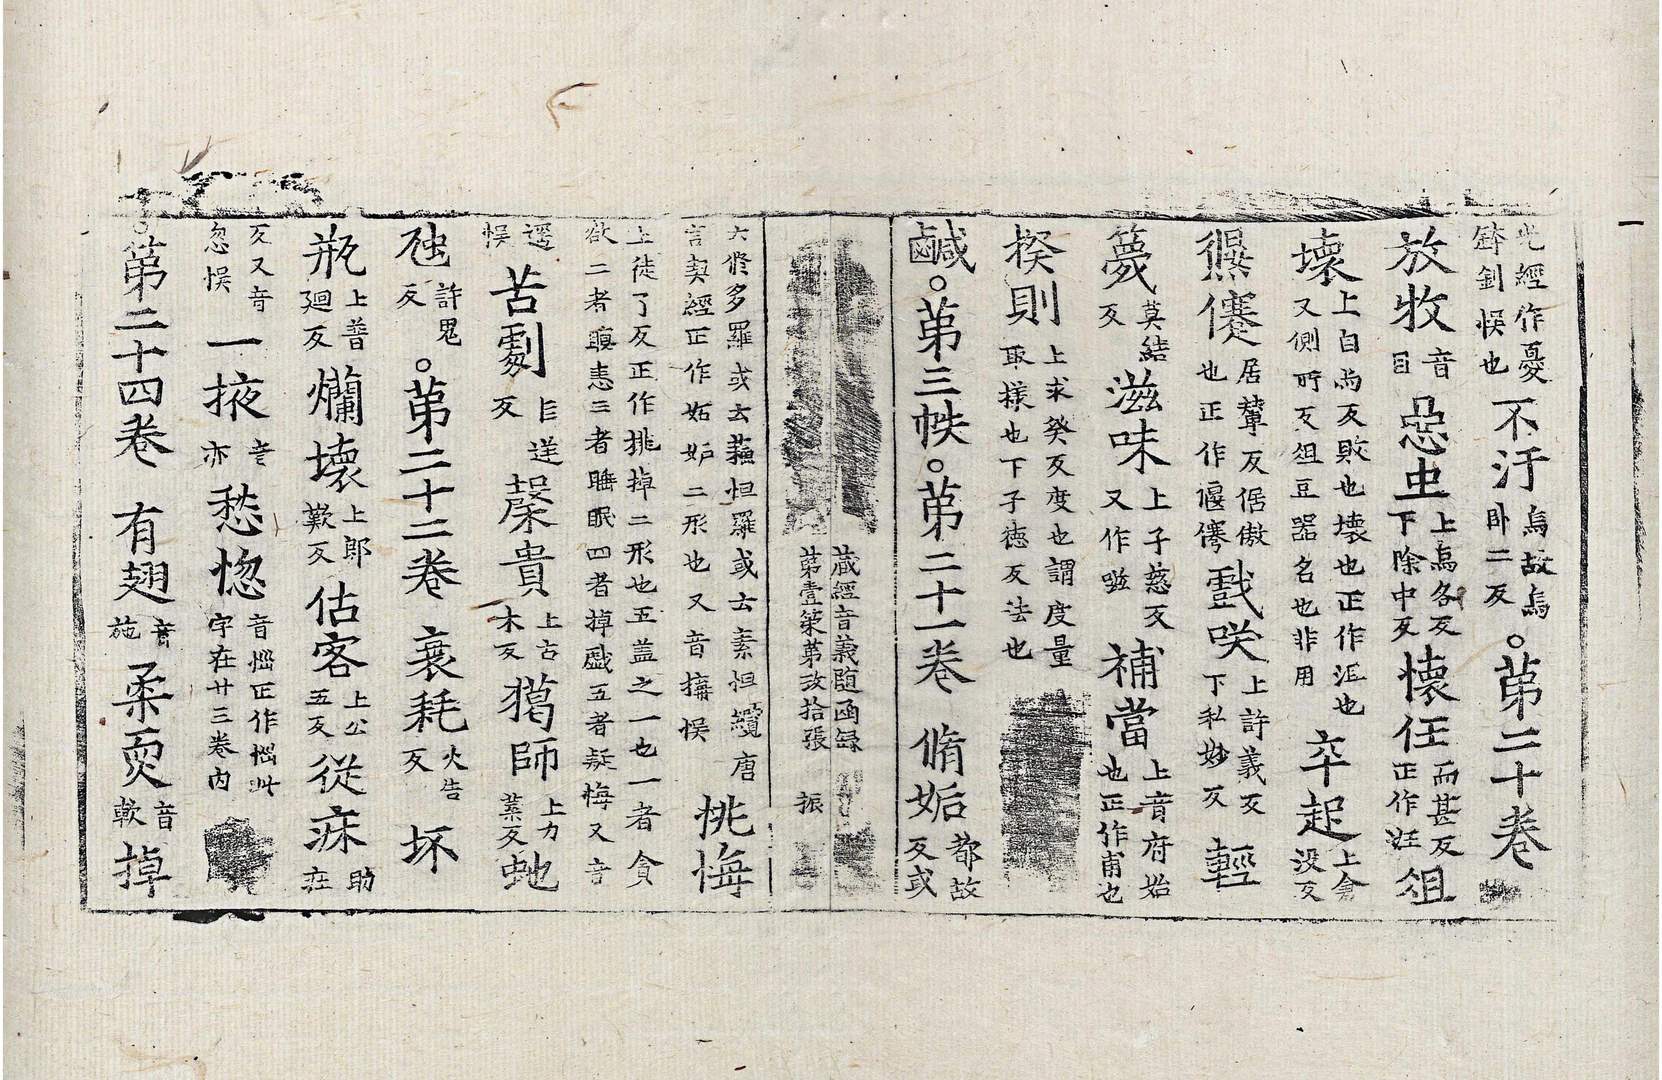 光經作憂
鉢釗悞也
不汙
烏故烏
卧二反
。第二十卷
放牧
音
目
惡虫
上烏各反
下除中反
懷任
而甚反
正作妊
俎
壞
上自尚反敗也壞也正作沮也
又側所反俎豆噐名也非用
卒起
上倉
没反
僈僿
居輦反倨傲
也正作偃僿
戲咲
上許義反
下私妙反
輕
篾
莫結
反
滋味
上子慈反
又作嗞
補當
上音府始
也正作甫也
揆則
上求癸反度也謂度量
取㨾也下子徳反法也
鹹。第三帙。第二十一卷
脩妬
都故
反或
藏經音義随函録
第壹第玖拾張
振
六脩多羅或云蘓怛羅或云素怛纜唐
言契經正作妬妒二形也又音悞
桃悔
上徒了反正作挑掉二形也五盖之一也一者貪
欲二者瞋恚三者睡眠四者掉戯五者疑悔又音
遥
悞
苦劇
巨逆
反
馨貴
上古
木反
獦師
上力
葉反
虵
虺
許鬼
反
。第二十二卷
衰耗
火告
反
坏
瓶
上普
廻反
爛壞
上郎
歎反
估客
上公
五反
從床
助
庄
反又音
忽悞
一掖
音
亦
愁惚
音惱正作惱此
字在廿三卷内
。第二十四卷
有翅
音
施
柔耎
音
軟
掉